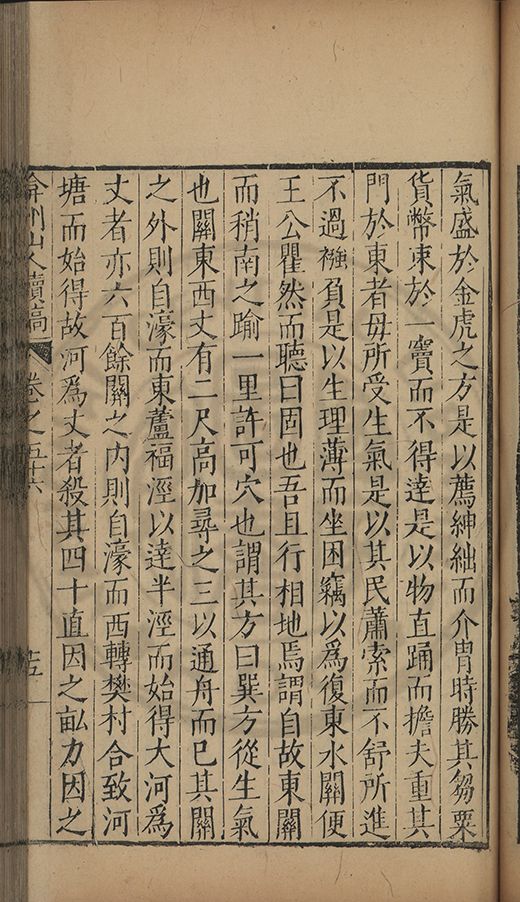 氣盛於金虎之方是以薦紳絀而介胄時勝其芻粟
貨幣束於一竇而不得達是以物直踊而擔夫重其
門於東者毋所受生氣是以其民蕭索而不舒所進
不過襁負是以生理薄而坐困竊以爲復東水關便
王公瞿然而聽曰固也吾且行相地焉謂自故東關
而稍南之踰一里許可穴也謂其方曰巽方從生氣
也關東西丈有二尺高加尋之三以通舟而已其關
之外則自濠而東蘆福涇以達半涇而始得大河爲
丈者亦六百餘關之內則自濠而西轉樊村合致河
塘而始得故河爲丈者殺其四十直因之畆力因之
弇州山人續稿 卷之五十六 十五